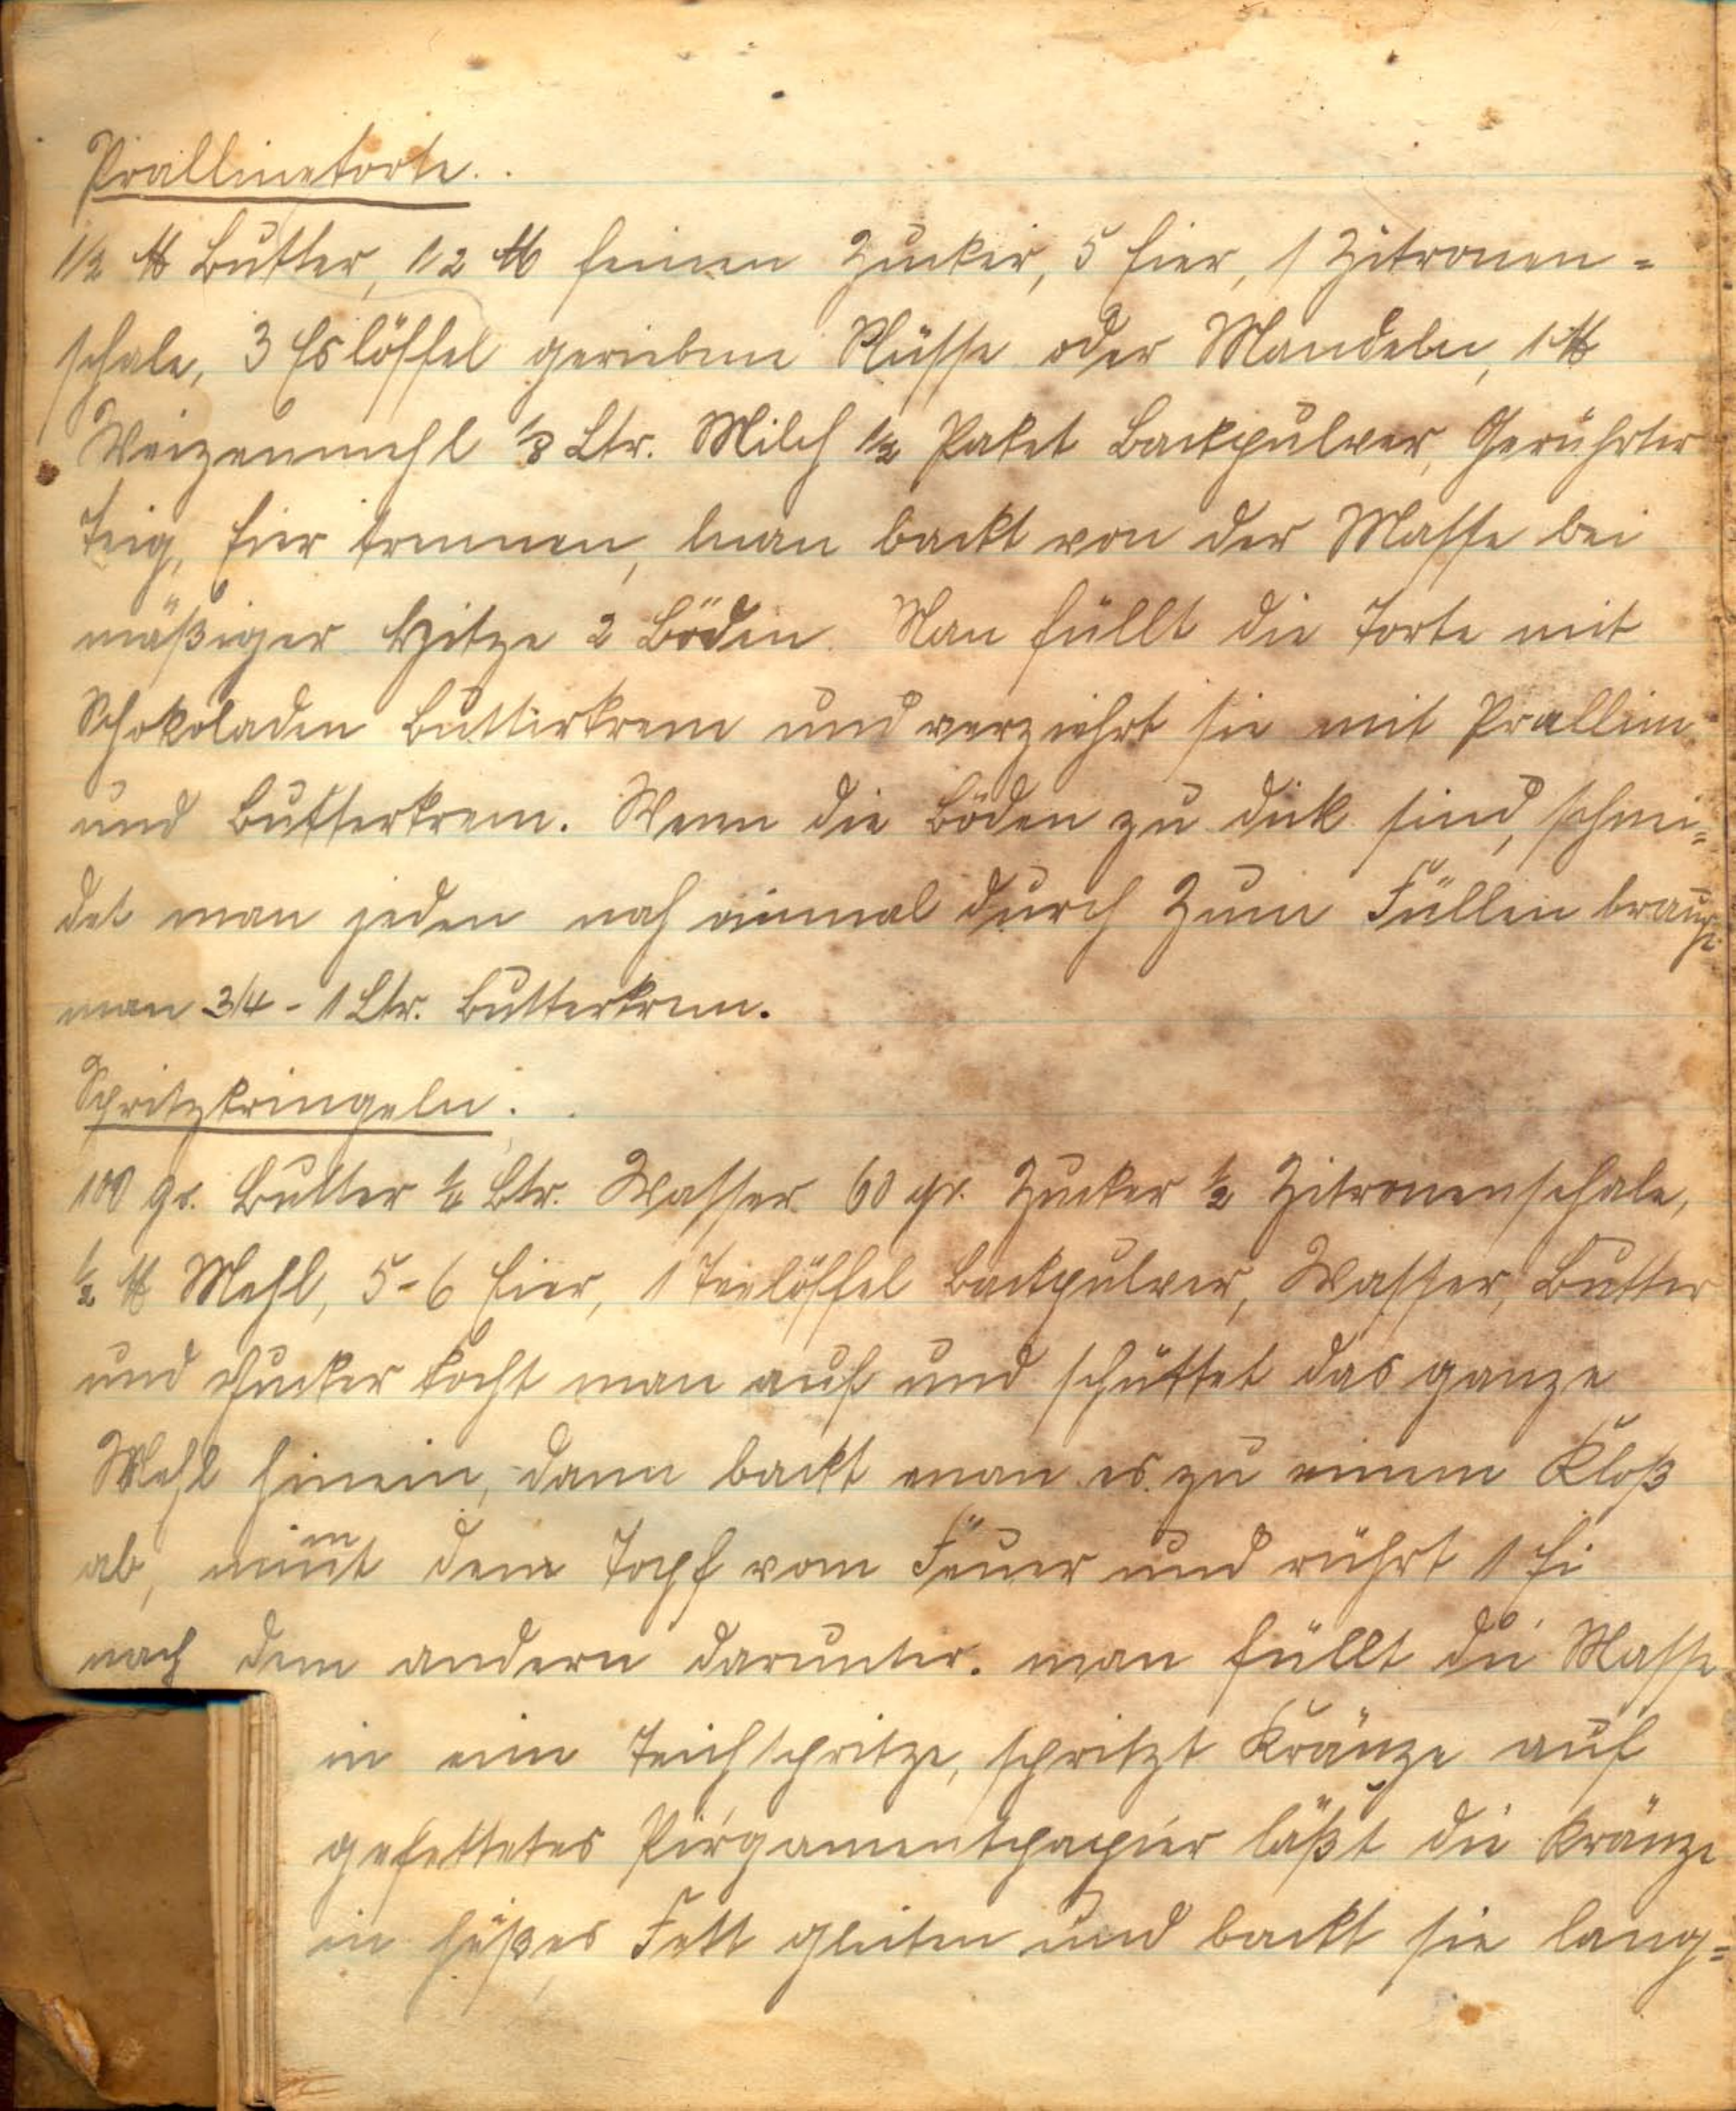 Prallinetorte.
1/2 ℔ Butter, 1/2 ℔ feinen Zucker, 5 Eier, 1 Zitronen=
schale, 3 Eslöffel geriebene Nüsse oder Mandeln, 1 ℔
Weizenmehl 1/8 Ltr. Milch 1/2 Paket Backpulver, Gerührter
Teig, Eier trennen, man backt von der Masse bei
mäßiger Hitze 2 Böden. Man füllt die Torte mit
Schokoladen Butterkrem und verziehrt sie mit Pralline
und Butterkrem. Wenn die Böden zu dick sind, schnei=
det man jeden noch einmal durch Zum Füllen braucht
man 3/4 - 1 Ltr. Butterkrem.
Spritzkringeln.
100 gr. Butter 1/4 Ltr. Wasser 60 gr. Zucker 1/2 Zitronenschale,
1/2 ℔ Mehl, 5-6 Eier, 1 Teelöffel Backpulver, Wasser, Butter
und Zucker kocht man auf und schüttet das ganze
Mehl hinein, dann backt man es zu einem Kloß
ab, nimmt den Topf vom Feuer und rührt 1 Ei
nach dem andern darunter. man füllt die Masse
in eine Teichspritze, spritzt Kränze auf
gefettetes Pergamentpapier läßt die Kränze
in heißes Fett gleiten und backt sie lang=